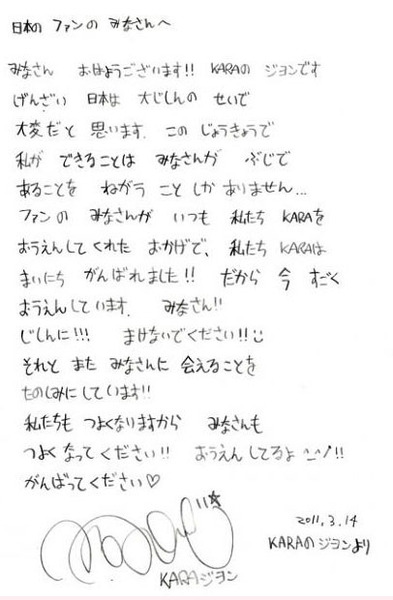 日本の ファンの みなさんへ
みなさん おはようございます!! KARAの ジヨンです
げんざい 日本は 大じしんの せいで
大変だと 思います. この じょうきょうで
私が できることは みなさんが ぶじで
あることを ねがう こと しか ありません...
ファンの みなさんが いつも 私たち KARAを
おうえんしてくれた おかげで、私たち KARAは
まいにち がんばれました!! だから 今 すごく
おうえんしています. みなさん!!
じしんに!!! まけないでください!!
それと また みなさんに 会えることを
たのしみにしています!!
私たちも つよくなりますから みなさんも
つよく なってください!! おうえんしてるよ !!
がんばってください♡
2011.3.14
KARAの ジヨンより
KARA ジヨン